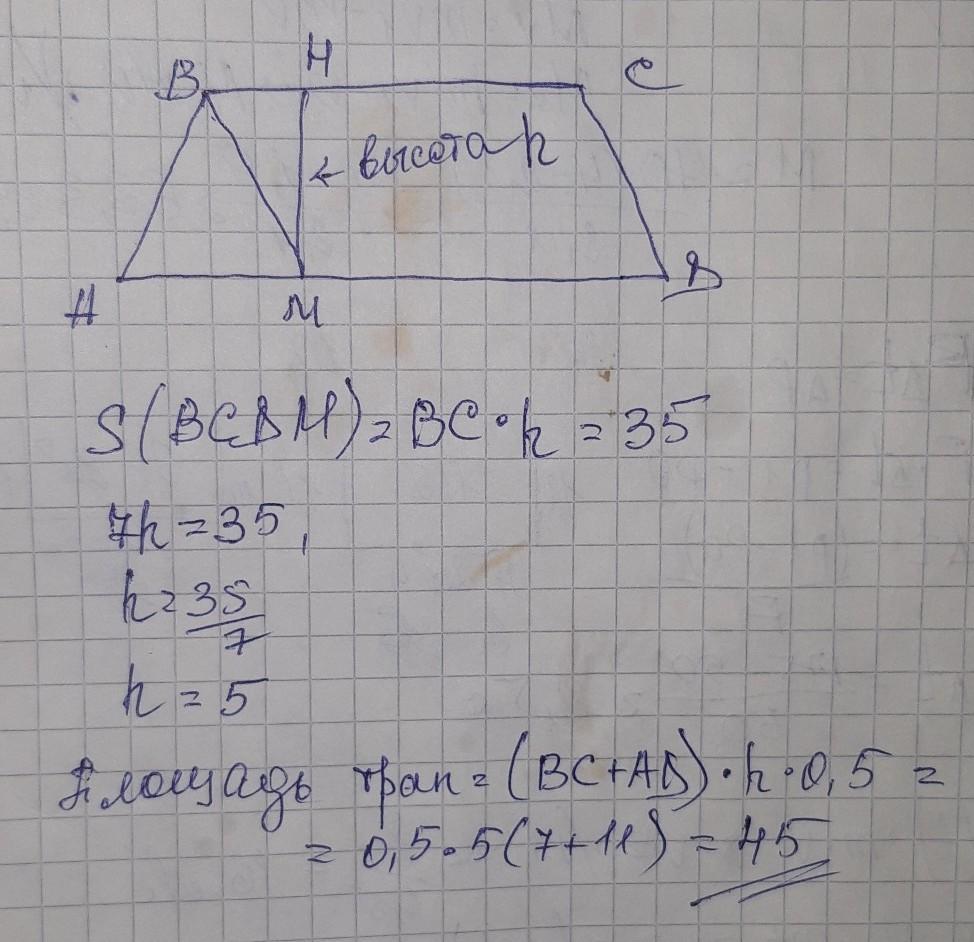 H
B
C
← высота h
A
M
D
S(BCDM) = BC · h = 35
7h = 35,
h = 35/7
h = 5
Площадь трап = (BC+AD) · h · 0,5 =
= 0,5 · 5(7+11) = 45